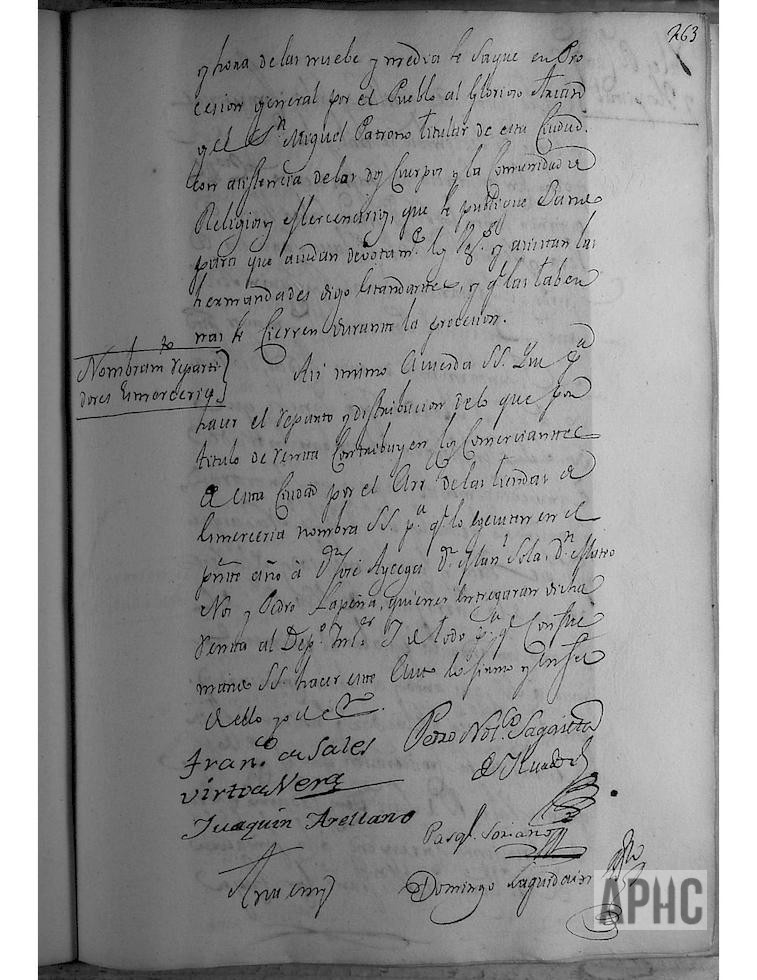 263
y hora de las nuebe y media se saque en Pro
cesion general por el Pueblo al Glorioso
y el Sn. Miguel Patrono titular de esta Ciudad.
con asistencia de las dos Cuerpos y la Comunidad de
Religiosos Mercenarios, que se publique Bando
para que acudan devotamte. los y asistan las
hermandades digo Estandartes, y qe. las taber
nas se Cierren durante la procesion.
Nombramto. reparti
dores
Asi mismo Acuerda SS. Que pa.
hacer el reparto y distribucion de lo que por
titulo de renta Contribuyen los Comerciantes
de esta Ciudad por el Arrdo. de las tiendas de
nombra SS. pa. qe. lo egecuten en el
pnte. año à Dn. José Aycega Dn. Manl. Sola, Dn. Mateo
Noi y Pedro Lapeña, quienes entregaran dicha
renta al Depo. Y de todo pa. qe. Conste
mando SS. hacer este Auto lo firmo y en fee
de ello yo el
Franco. de Sales
virto de Vera
Joaquin Arellano
Pedro Nol.co Sagaseta
de Ylurdoz
Pasql. Soriano
Domingo
Ante mi
APHC